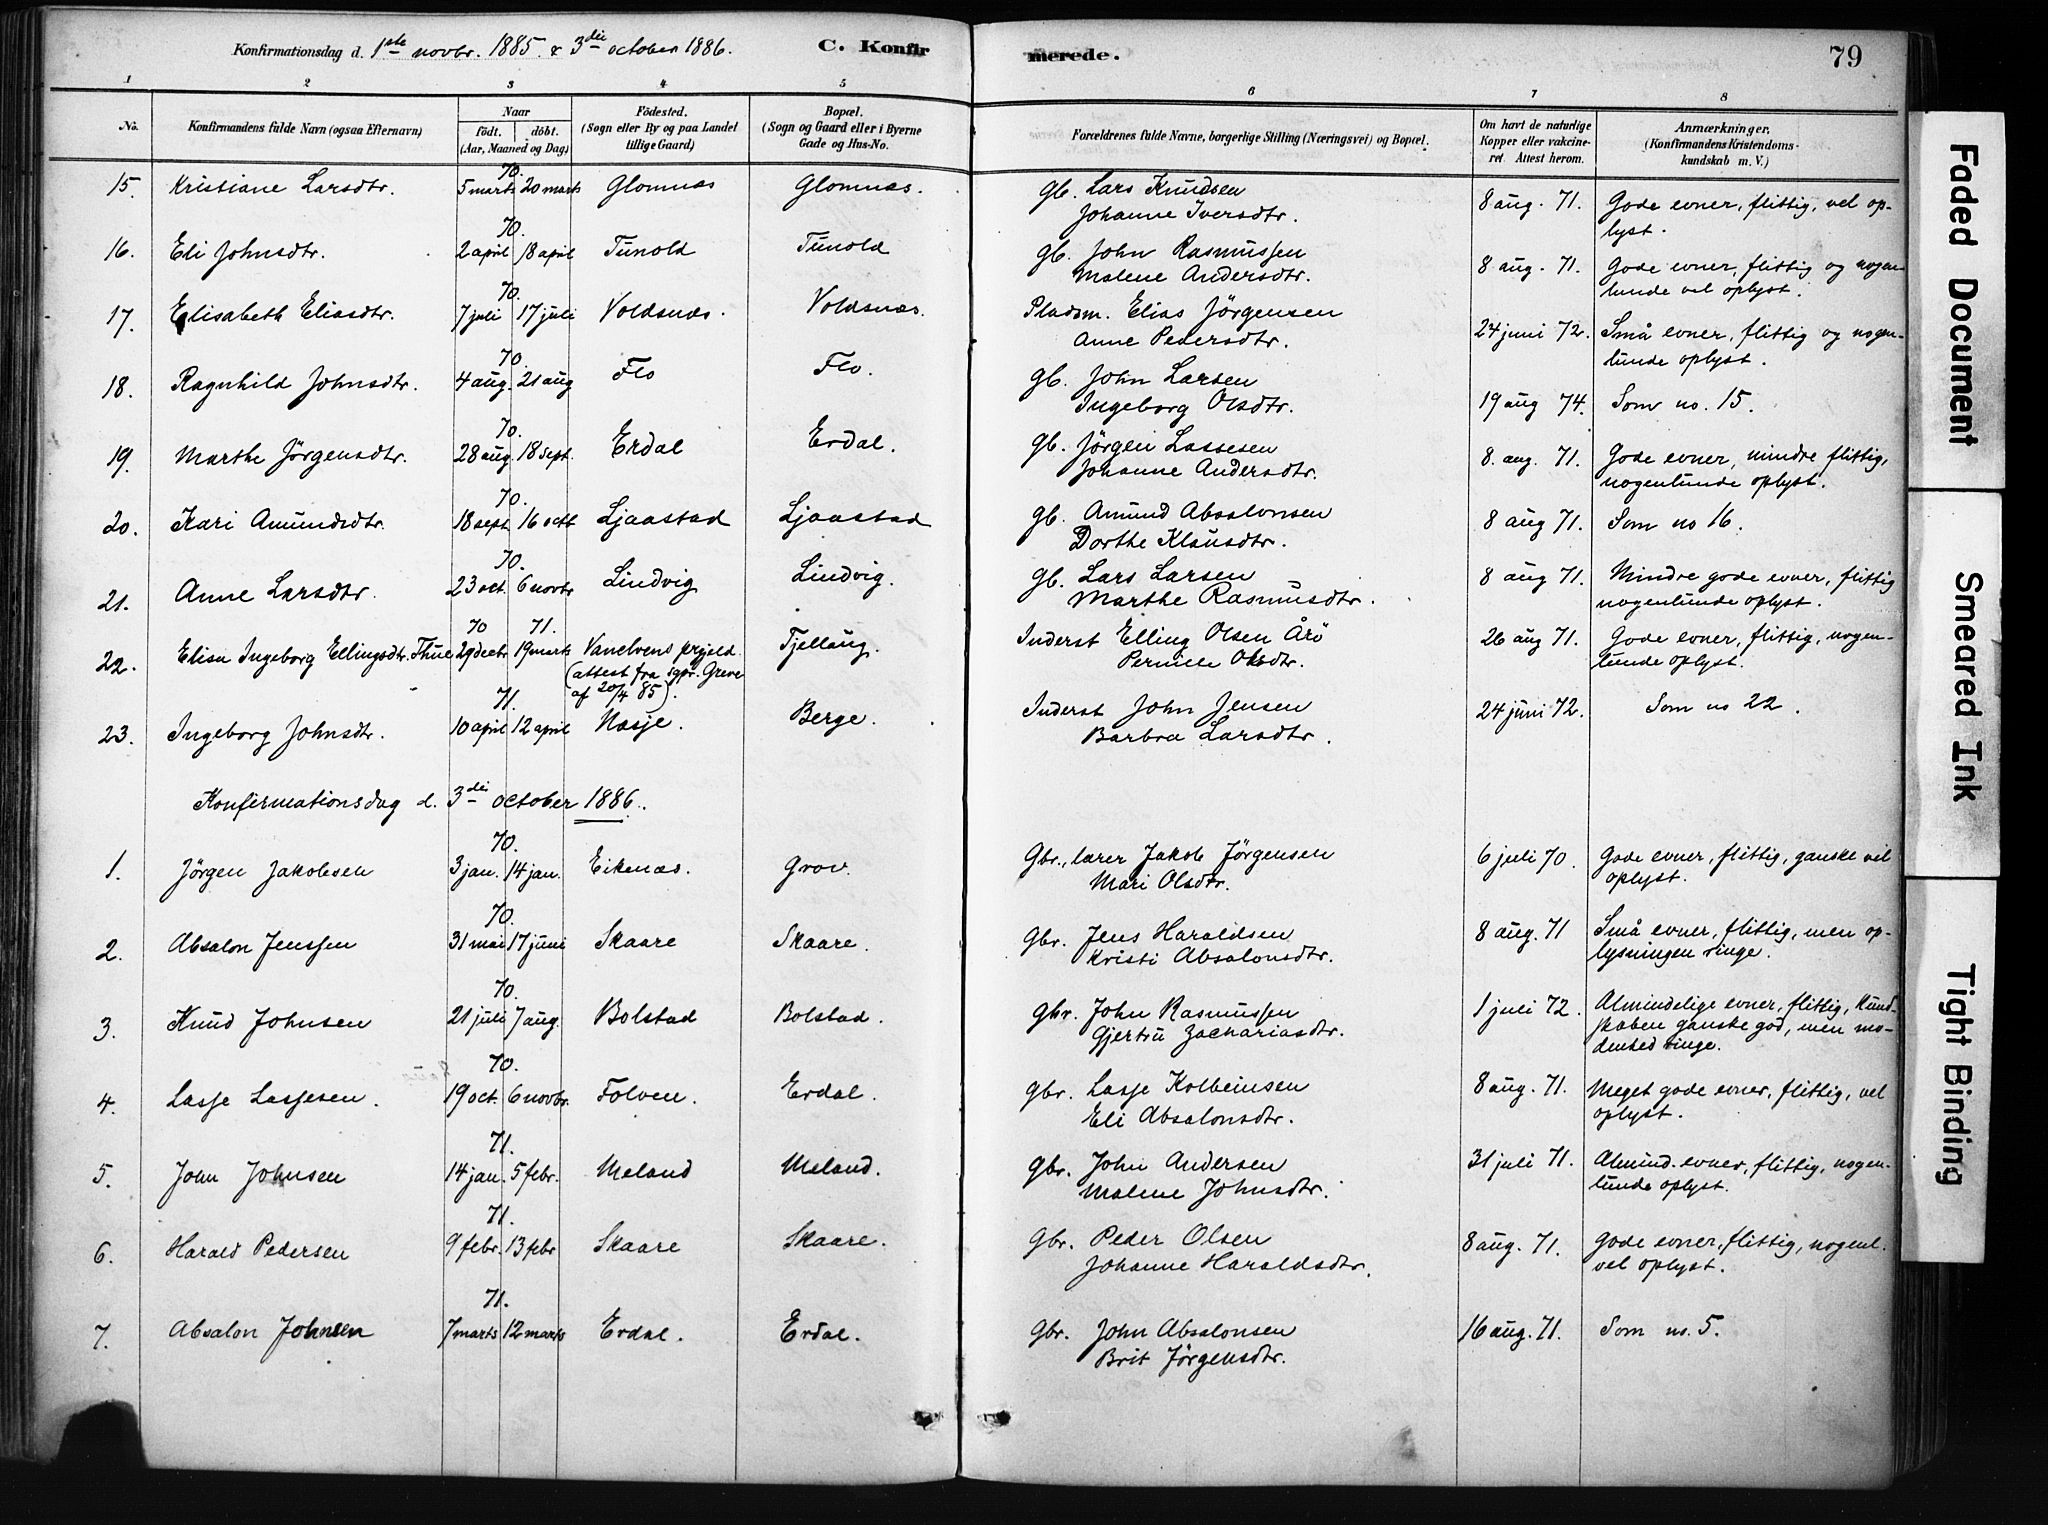 Konfirmationsdag d. 1ste novbr. 1885 & 3die october 1886. C. Konfirmerede. 79
1 2 3 4 5 6 7 8
No. Konfirmandens fulde Navn (ogsaa Efternavn) Naar födt. döbt. (Aar, Maaned og Dag) Födested. (Sogn eller By og paa Landet tillige Gaard) Bopæl. (Sogn og Gaard eller i Byerne Gade og Hus-No. Forældrenes fulde Navne, borgerlige Stilling (Næringsvei) og Bopæl. Om havt de naturlige Kopper eller vakcineret. Attest herom. Anmærkninger. (Konfirmandens Kristendomskundskab m. V.)
15. Kristiane Larsdtr. 70. 5 marts 20 marts Glomnæs Glomnæs. gb. Lars Knudsen 8 aug. 71. Gode evner, flittig, vel op-
Johanne Iversdtr. lyst.
16. Eli Johnsdtr. 70. 2 april 18 april Tunold Tunold gb. John Rasmussen 8 aug. 71. Gode evner, flittig og nogen-
Malene Andersdtr. lunde vel oplyst.
17. Elisabeth Eliasdtr. 70. 7 juli 17 juli Voldsnæs. Voldsnæs. Pladsm. Elias Jörgensen 24 juni 72. Små evner, flittig og nogen-
Anne Pedersdtr. lunde oplyst.
18. Ragnhild Johnsdtr. 70. 4 aug. 21 aug Flo Flo. gb. John Larsen 19 aug 74. Som no. 15.
Ingeborg Olsdtr.
19. Marthe Jörgensdtr. 70. 28 aug. 18 sept. Erdal Erdal. gb. Jörgen Lassesen 8. aug. 71. Gode evner, mindre flittig,
Johanne Andersdtr. nogenlunde oplyst.
20. Kari Amundsdtr. 70. 18 sept. 16 octt Ljaastad Ljaastad gb. Amund Absalonsen 8 aug 71. Som no 16.
Dorthe Klausdtr.
21. Anne Larsdtr. 70. 23 oct. 6 novbr Lindvig Lindvig. gb. Lars Larsen 8 aug 71. Mindre gode evner, flittig
Marthe Rasmusdtr. nogenlunde oplyst.
22. Elisa Ingeborg Ellingsdtr. Thue 70 29 decbr 71. 19 marts Vanelvens prgjeld. Tjellaug. Inderst Elling Olsen Årö 26 aug 71. Gode evner, flittig, nogen-
(attest fra sgpr. Greve Pernille Olsdtr. lunde oplyst.
af 20/4 85).
23. Ingeborg Johnsdtr. 71. 10 april 12 april Nesje. Berge. Inderst John Jensen 24 juni 72. Som no 22.
Barbra Larsdtr.
Konfirmationsdag d. 3die october 1886.
1. Jörgen Jakobsen 70. 3 jan. 14 jan. Eikenæs. Grov. Gbr., lærer Jakob Jörgensen 6 juli 70. Gode evner, flittig, ganske vel
Mari Olsdtr. oplyst.
2. Absalon Jenssen 70. 31 mai 17 juni Skaare Skaare. Gbr. Jens Haraldsen 8 aug. 71 Små evner, flittig, men op-
Kristi Absalonsdtr. lysningen ringe.
3. Knud Johnsen 70. 21 juli 7 aug. Bolstad Bolstad. Gbr. John Rasmussen 1 juli 72. Almindelige evner, flittig, kund-
Gjertru Zachariasdtr. skaben ganske god, men mo-
denhed ringe.
4. Lasse Lassesen. 70. 19 oct. 6 novbr. Folven. Erdal. Gbr. Lasse Kolbeinsen 8 aug. 71. Meget gode evner, flittig, vel
Eli Absalonsdtr. oplyst.
5. John Johnsen 71. 14 jan. 5 febr. Meland Meland. Gbr. John Andersen 31 juli 71. Almind. evner, flittig, nogen-
Malene Johnsdtr. lunde oplyst.
6. Harald Pedersen 71. 9 febr. 13 febr Skaare Skaare. Gbr. Peder Olsen 8 aug. 71. Gode evner, flittig, nogenl.
Johanne Haraldsdtr. vel oplyst.
7. Absalon Johnsen 71. 7 marts 12 marts Erdal. Erdal. Gbr. John Absalonsen 16 aug. 71. Som no. 5.
Brit Jörgensdtr.
Faded Document
Smeared Ink
Tight Binding